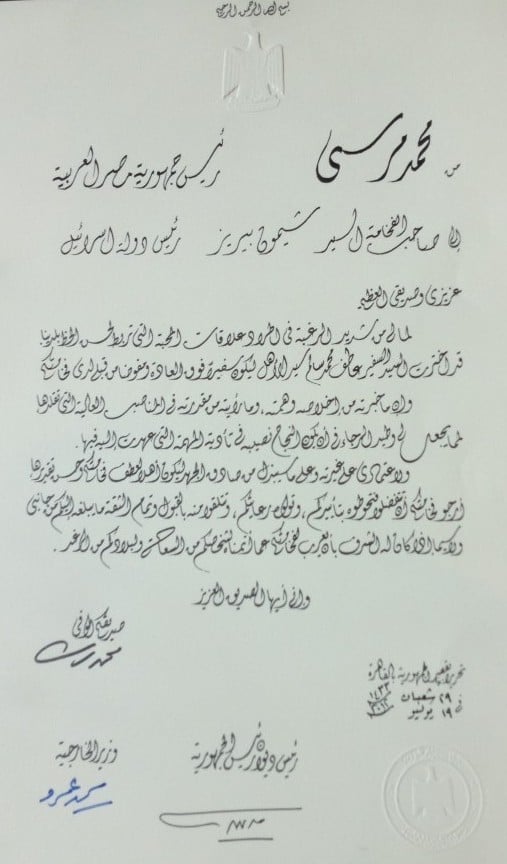 بسم الله الرحمن الرحيم
من محمد مرسى رئيس جمهورية مصر العربية
إلى صاحب الفخامة السيد شيمون بيريز رئيس دولة اسرائيل
عزيزى وصديقى العظيم
لما لى من شديد الرغبة فى اطراد علاقات المحبة التى تربط لحسن الحظ بلدينا
قد اخترت السيد السفير عاطف محمد سالم سيد الأهل ليكون سفيراً فوق العادة ومفوضاً من قبلى لدى فخامتكم
وإن ما خبرته من إخلاصه وهمته، وما رأيته من مقدرته فى المناصب العالية التى تقلدها
لمما يجعل لى وطيد الرجاء فى أن يكون النجاح نصيبه فى تأدية المهمة التى عهدت إليه فيها.
ولاعتمادى على غيرته وعلى ما سيبذل من صادق الجهد ليكون أهلاً لعطف فخامتكم وحسن تقديرها
أرجو فخامتكم أن تتفضلوا فتحوطوه بتأييدكم، وتولوه رعايتكم، وتتلقوا منه بالقبول وتمام الثقة ما يبلغه إليكم من جانبى
ولا سيما إذا كان له الشرف بأن يعرب لفخامتكم عما أتمناه لشخصكم من السعادة ولبلادكم من الرغد.
وإنى أيها الصديق العزيز
صديقكم الوفى
محمد مرسى
تحريراً بقصر الجمهورية بالقاهرة
فى ٢٩ شعبان ١٤٣٣
١٩ يوليو ٢٠١٢
رئيس ديوان رئيس الجمهورية
وزير الخارجية